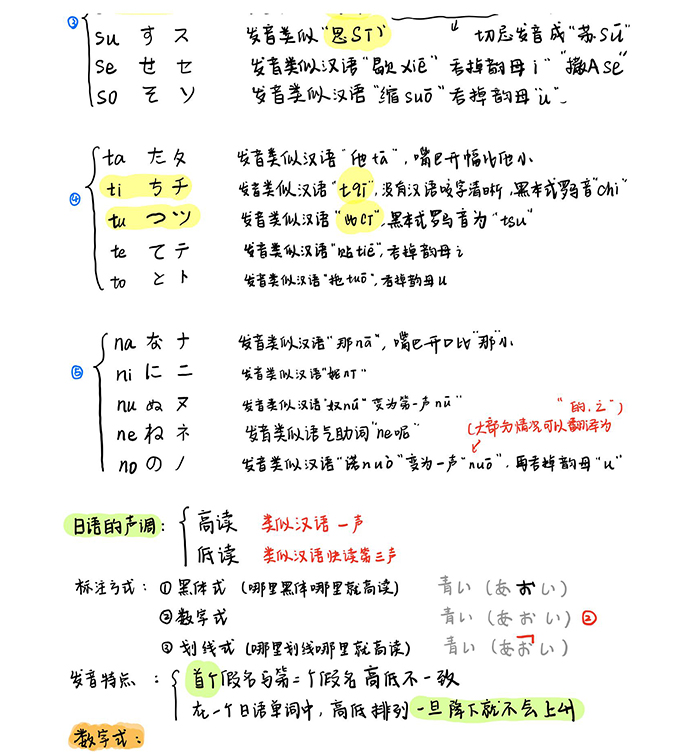 ③
su す ス 发音类似"思sī" 切忌发音成"苏sū"
se せ セ 发音类似汉语"歇xiē"去掉韵母i "撒A se"
so そ ソ 发音类似汉语"缩suō"去掉韵母"u"
④
ta た タ 发音类似汉语"他tā",嘴巴开幅比他小
ti ち チ 发音类似汉语"tqī",没有汉语咬字清晰,黑本式罗马音"chi"
tu つ ツ 发音类似汉语"此cī",黑本式罗马音为"tsu"
te て テ 发音类似汉语"贴tiē",去掉韵母i
to と ト 发音类似汉语"拖tuō",去掉韵母u
⑤
na な ナ 发音类似汉语"那nā",嘴巴开口比"那"小
ni に ニ 发音类似汉语"妮nī"
nu ぬ ヌ 发音类似汉语"奴nú"变为第一声nū"
"的,之")
ne ね ネ 发音类似汉语气助词"ne呢"
(大部分情况可以翻译为
no の ノ 发音类似汉语"诺nuò"变为一声"nuō",再去掉韵母"u"
日语的声调: 高读 类似汉语一声
低读 类似汉语快读第三声
标注方式: ①黑体式 (哪里黑体哪里就高读) 青い (あおい)
②数字式 青い (あおい) ②
③划线式 (哪里划线哪里就高读) 青い (あおい)
发音特点: 首个假名与第二个假名高低不一致
在一个日语单词中,高低排列一旦降下就不会上升
数字式: